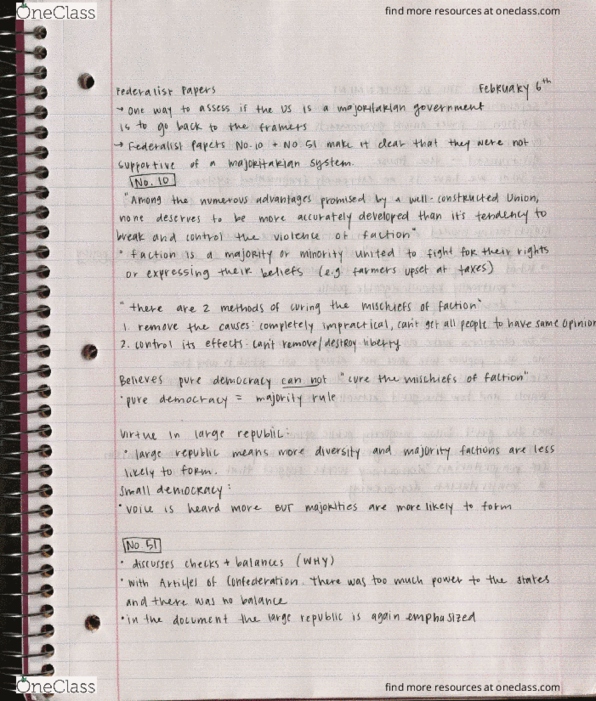 OneClass
find more resources at oneclass.com
Federalist Papers February 6th
→ One way to assess if the US is a majoritarian government
is to go back to the framers
→ Federalist Papers No. 10 + NO 51 make it clear that they were not
supportive of a majoritarian system.
No. 10
"Among the numerous advantages promised by a well-constructed Union,
none deserves to be more accurately developed than it's tendency to
break and control the violence of faction"
• faction is a majority or minority united to fight for their rights
or expressing their beliefs (e.g farmers upset at taxes)
"there are 2 methods of curing the mischiefs of faction"
1. remove the causes: completely impractical, can't get all people to have same opinion
2. control its effects: can't remove/destroy liberty
Believes pure democracy can not "cure the mischiefs of faction"
• pure democracy = majority rule
Virtue in large republic:
• large republic means more diversity and majority factions are less
likely to form.
Small democracy:
• voice is heard more BUT majorities are more likely to form
No. 51
• discusses checks + balances (WHY)
• with Articles of Confederation there was too much power to the states
and there was no balance
• in the document the large republic is again emphasized
OneClass
find more resources at oneclass.com